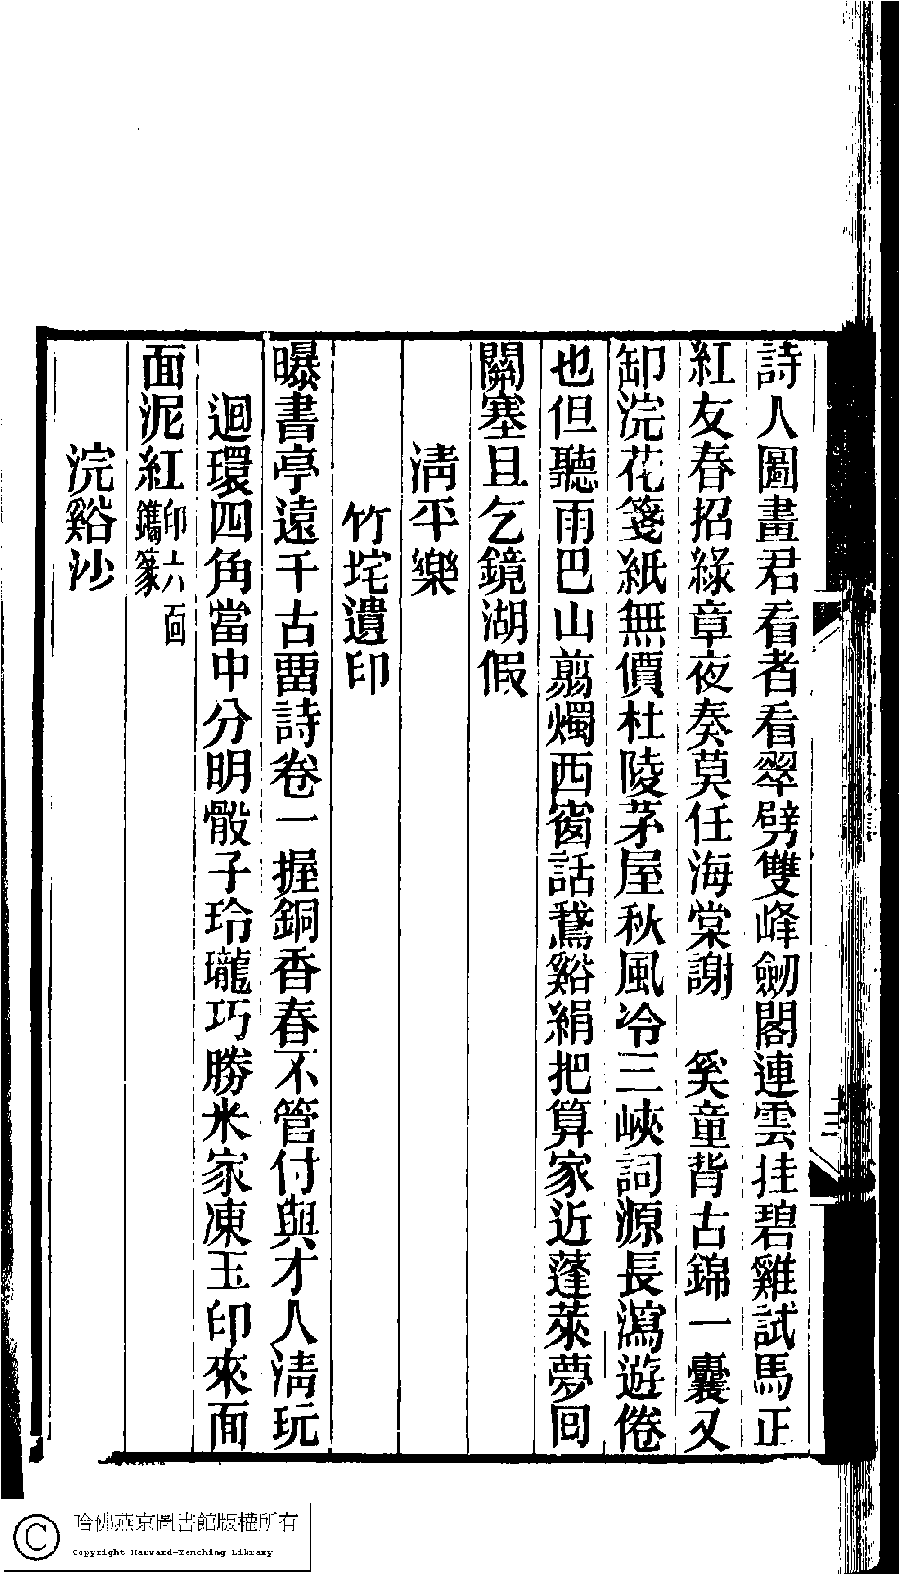 詩人圖畫君看者看翠劈雙峰劒閣連雲挂碧雞試馬正
紅友春招綠章夜奏莫任海棠謝　奚童背古錦一囊又
卸浣花箋紙無價杜陵茅屋秋風冷三峽詞源長瀉遊倦
也但聽雨巴山翦燭西窗話鵞谿絹把算家近蓬萊夢回
關塞且乞鏡湖假
清平樂
竹垞遺印
曝書亭遠千古畱詩卷一握銅香春不管付與才人清玩
迴環四角當中分明骰子玲瓏巧勝米家凍玉印來面
面泥紅印六面鐫篆
浣谿沙
哈佛燕京圖書館版權所有
Copyright Harvard-Yenching Library